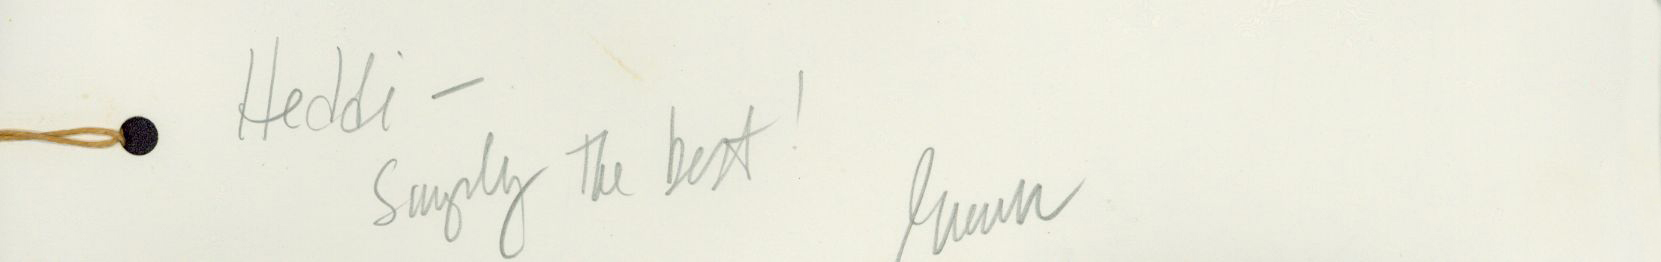 Heddi –
Simply the best!